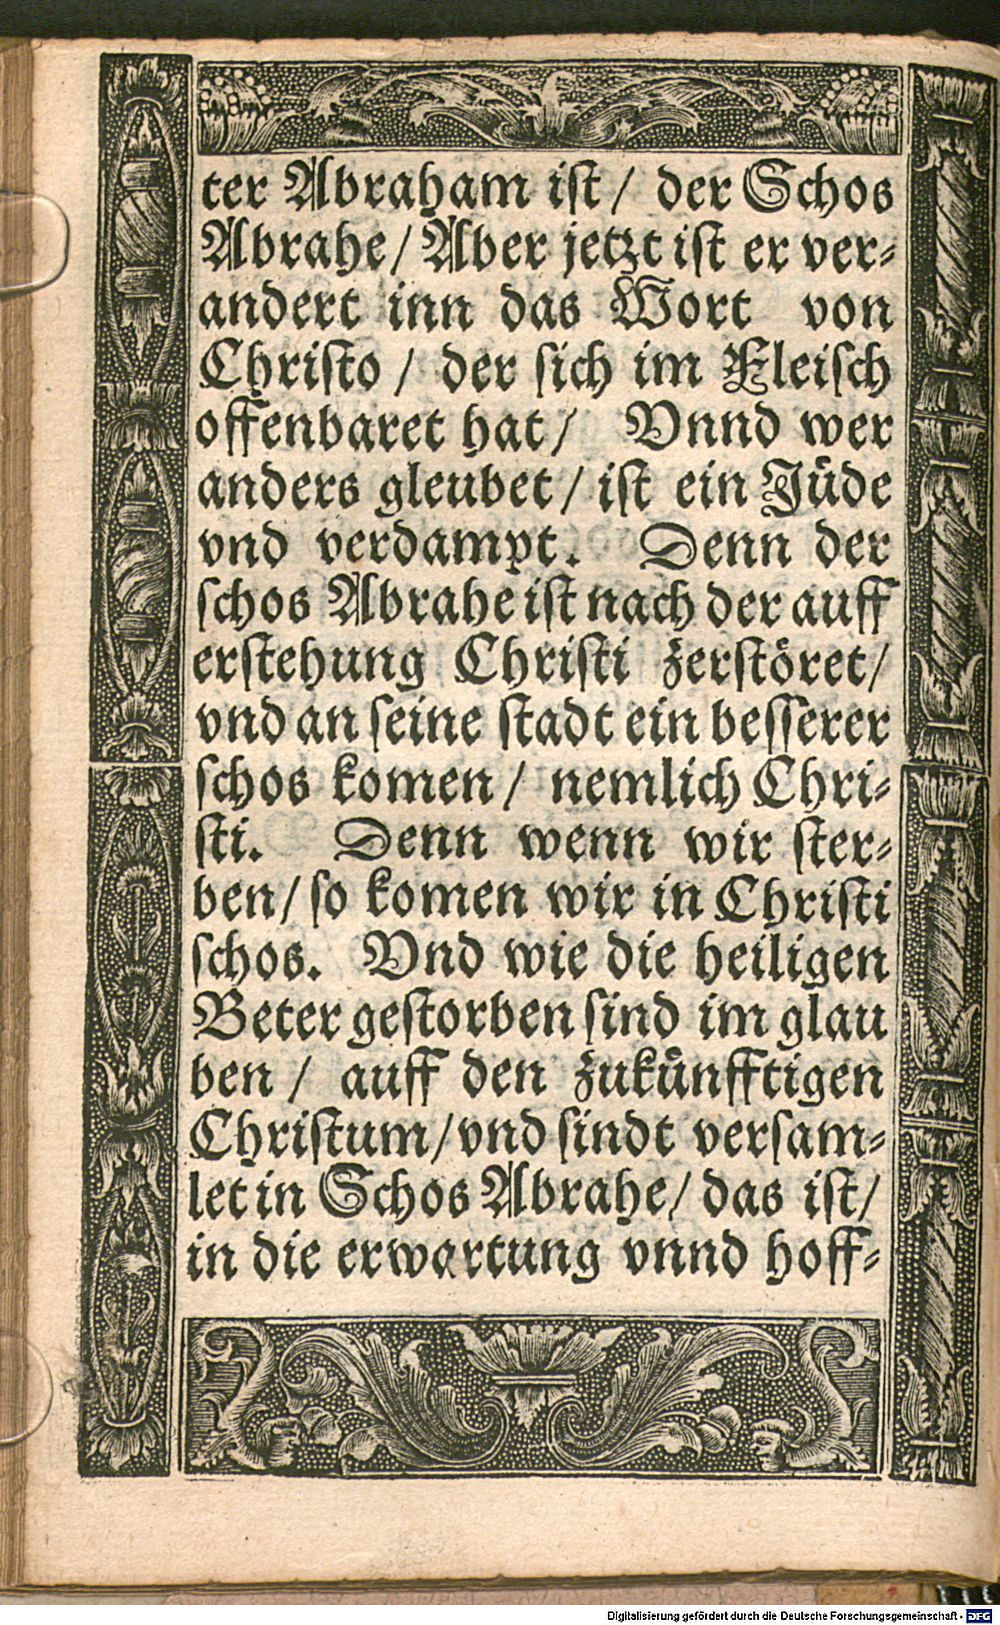 ter Abraham iſt/ der Schos
Abrahe/ Aber jetzt iſt er ver⸗
andert inn das Wort von
Chriſto / der ſich im Fleiſch
offenbaret hat/ Vnnd wer
anders gleubet/ iſt ein Jüde
vnd verdampt. Denn der
ſchos Abrahe iſt nach der auff
erſtehung Chriſti zerſtöret/
vnd an ſeine ſtadt ein beſſerer
ſchos komen/ nemlich Chri⸗
ſti. Denn wenn wir ſter⸗
ben/ ſo komen wir in Chriſti
ſchos. Vnd wie die heiligen
Veter geſtorben ſind im glau
ben / auff den zukünfftigen
Chriſtum/ vnd ſindt verſam⸗
let in Schos Abrahe/ das iſt/
in die erwartung vnnd hoff⸗
Digitalisierung gefördert durch die Deutsche Forschungsgemeinschaft - DFG